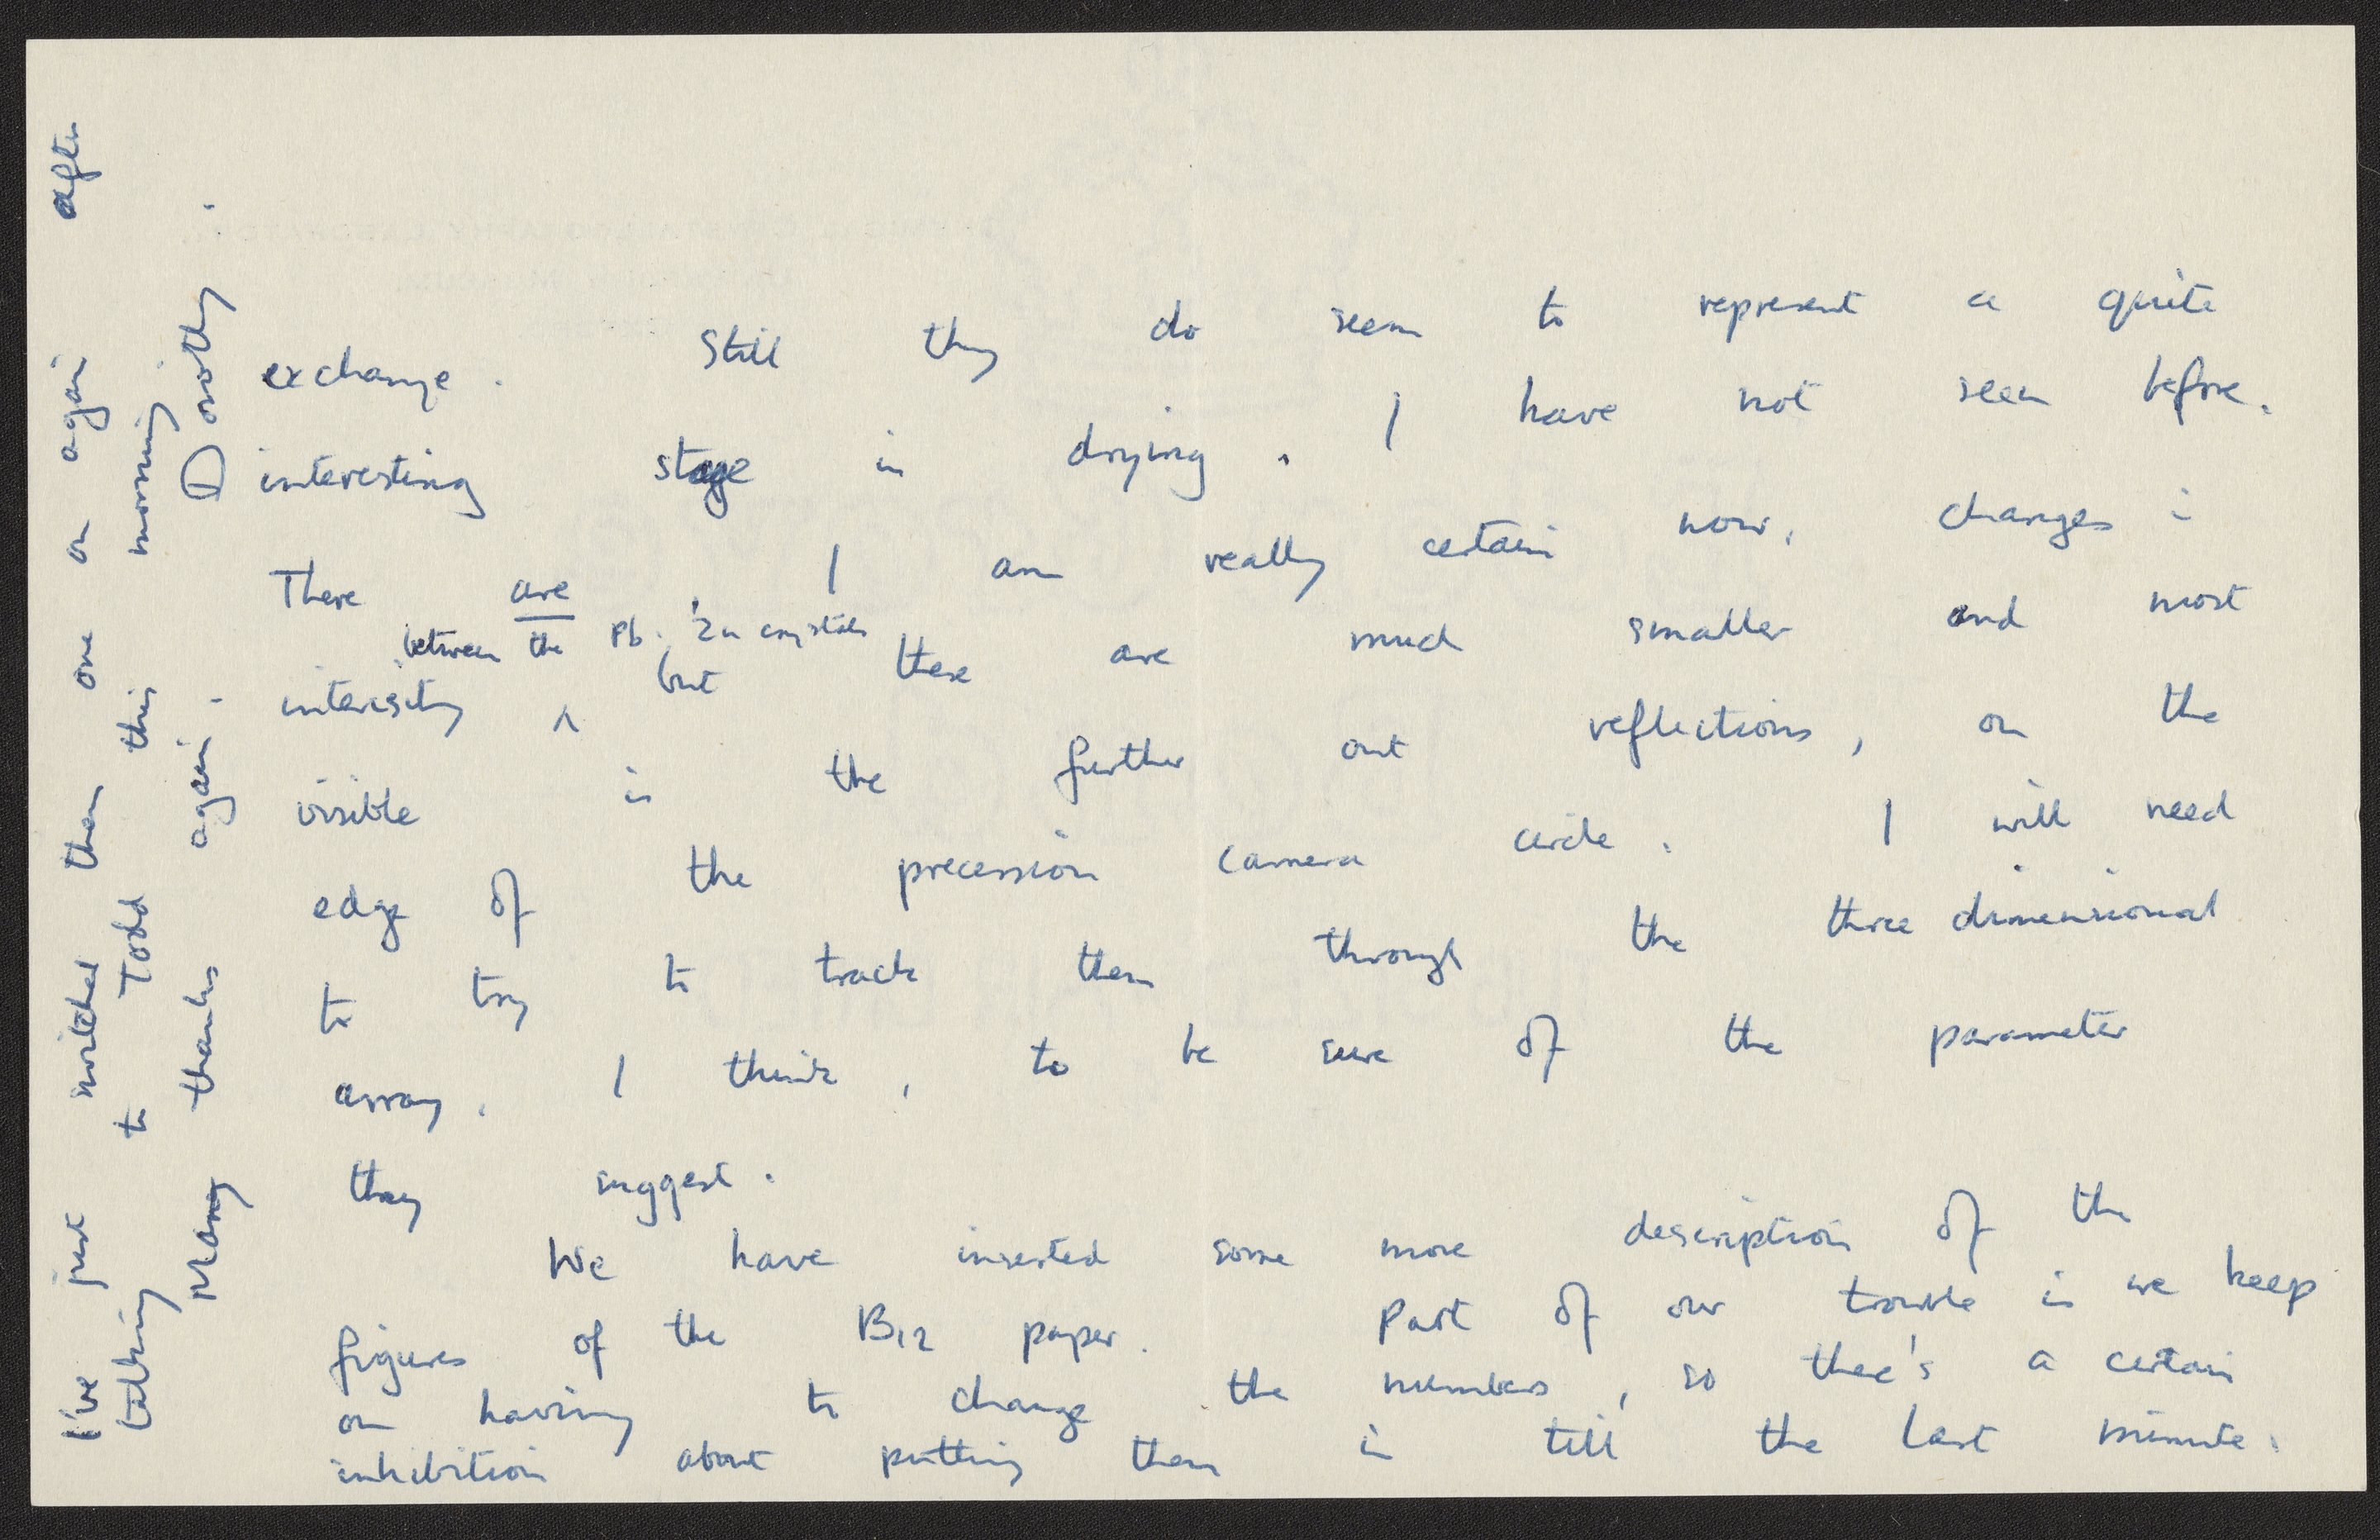 exchange. Still they do seem to represent a quite
interesting stage in drying. I have not seen before.
There are, I am really certain now, changes in
between the Pb, Zn crystals
intensity ^ but these are much smaller and most
visible in the further out reflections, on the
edge of the precession camera circle. I will need
to try to track them through the three dimensional
array. I think, to be sure of the parameter
they suggest.
We have inserted some more description of the
figures of the B12 paper. Part of our trouble is we keep
on having to change the numbers, so there's a certain
inhibition about putting them in till the last minute.
I've just switched them one on again after
talking to Todd this morning
Many thanks again. Dorothy.